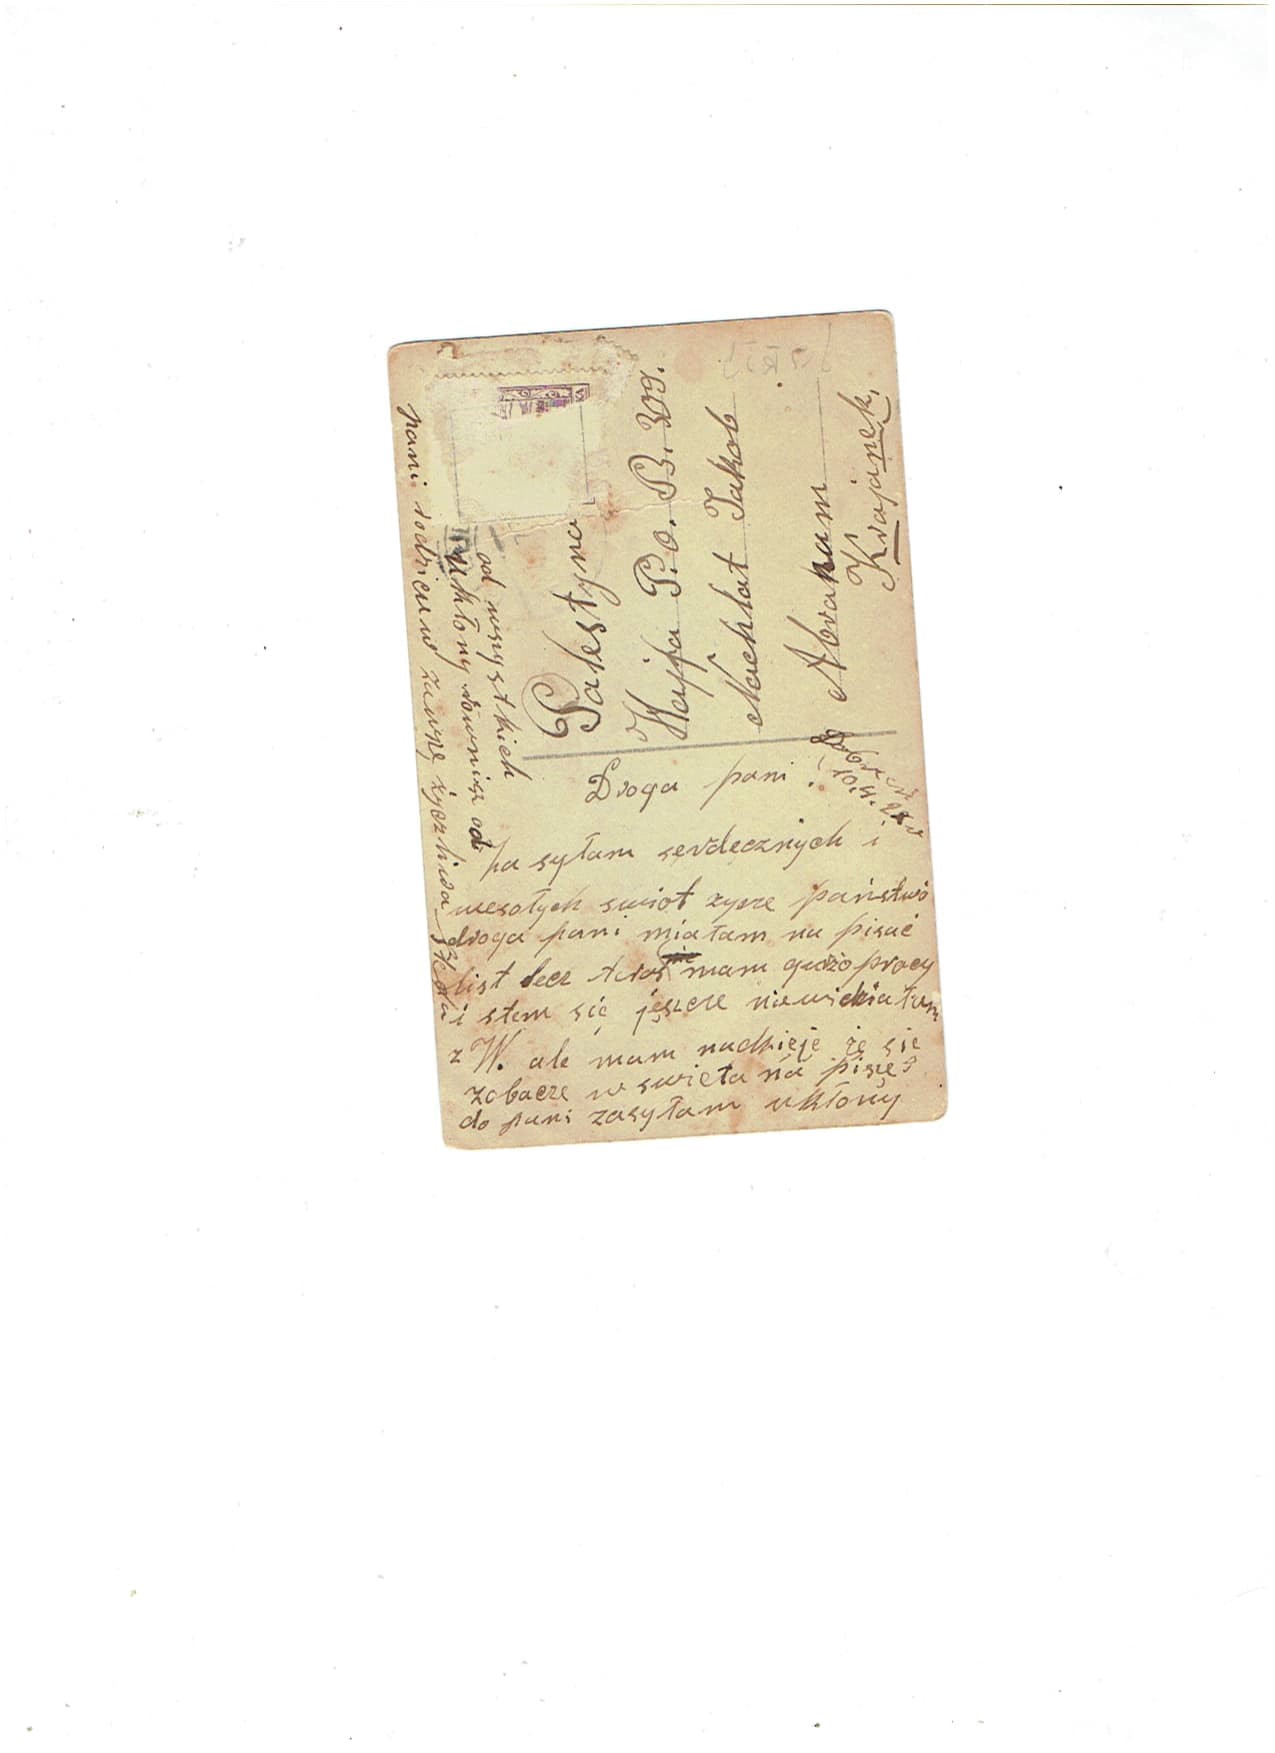 Palestyna
Hajfa P.o. B. 309.
Nachlat Jakob
Abraham
Krajanek,
Droga pani!
pa sytam serdecznych i
wesołych swiot zycze państwo
droga pani miałam na pisać
list lecz teras mam gużo pracy
i stem się jeszcze niewidziałam
z W. ale mam nadzieje że sie
zobacze w swieta na pisze
do pani zasyłam ukłony
od wszystkich
ukłony również od
pani rodzicuw zawsze życzliwa